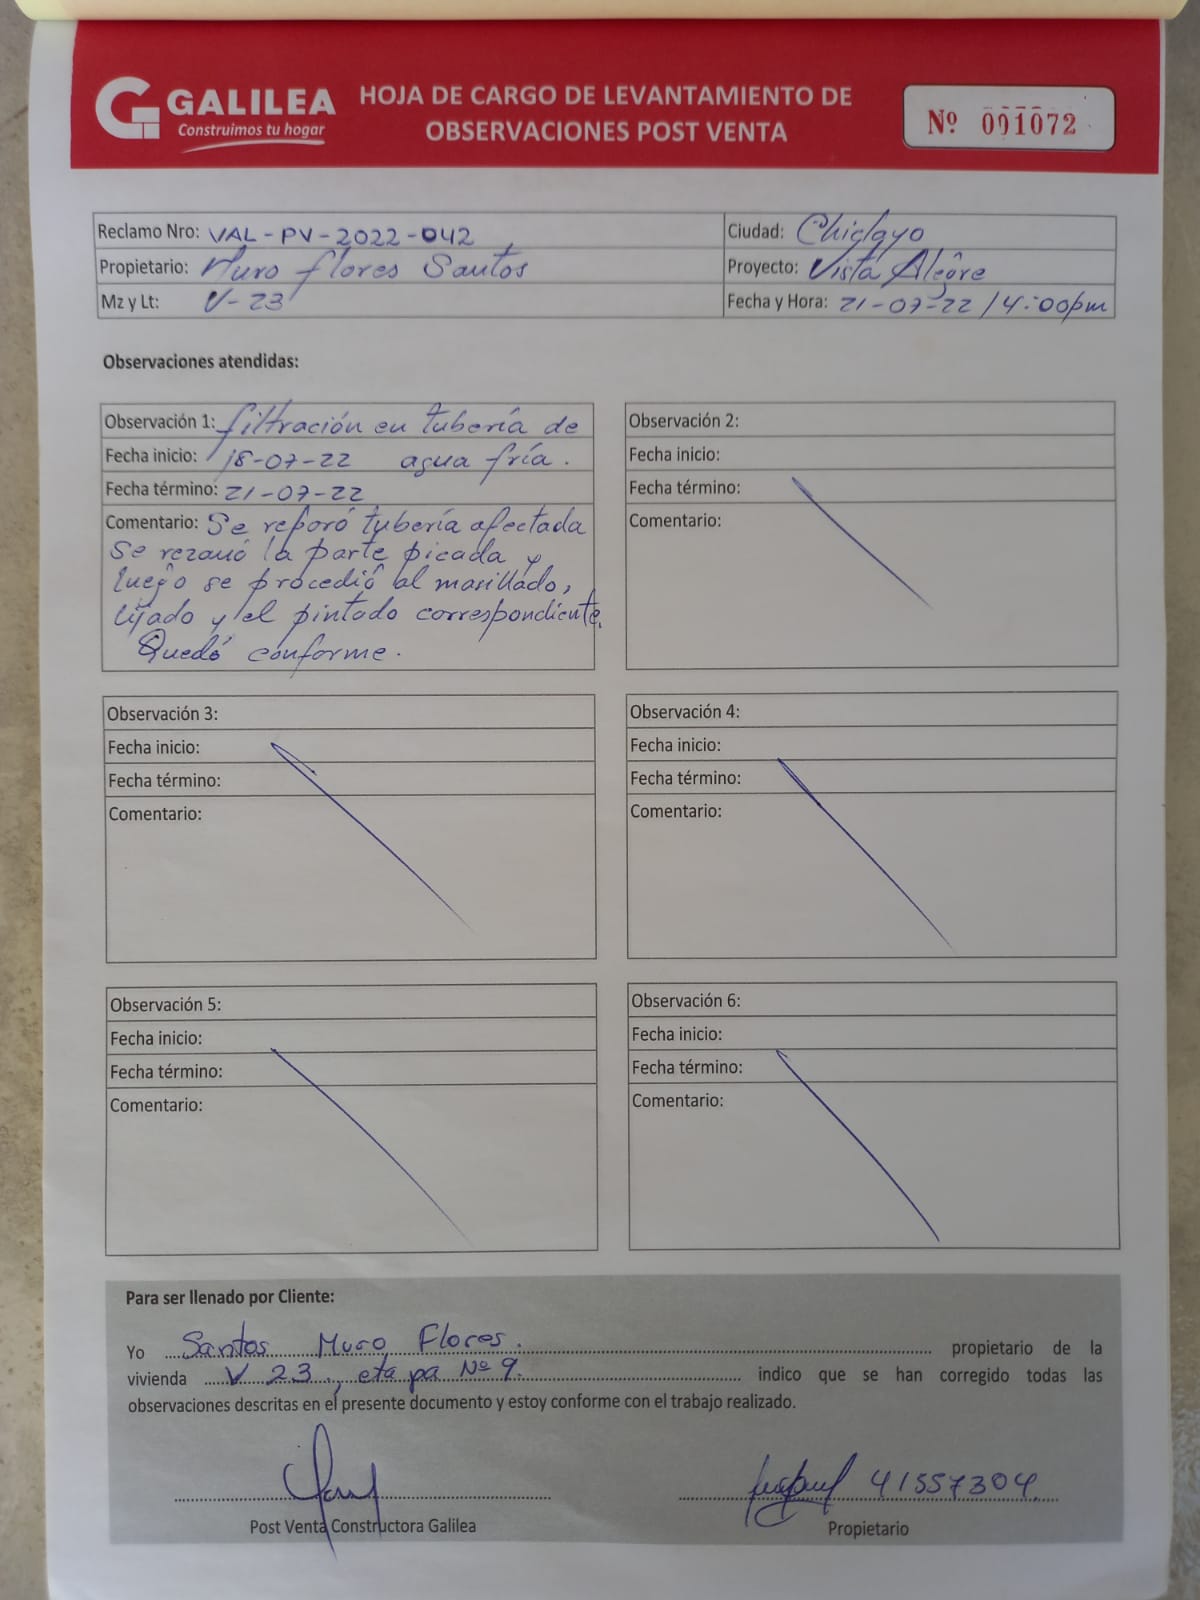 GALILEA
Construimos tu hogar
HOJA DE CARGO DE LEVANTAMIENTO DE
OBSERVACIONES POST VENTA
Nº 001072
Reclamo Nro: VAL-PV-2022-042
Ciudad: Chiclayo
Propietario: Muro Flores Santos
Proyecto: Vista Alegre
Mz y Lt: V-23
Fecha y Hora: 21-07-22 / 4:00pm
Observaciones atendidas:
Observación 1: filtración en tubería de
Fecha inicio: 18-07-22 agua fría.
Fecha término: 21-07-22
Comentario: Se reparó tubería afectada
se rezanó la parte picada y
luego se procedió al masillado,
lijado y el pintado correspondiente.
Quedó conforme.
Observación 2:
Fecha inicio:
Fecha término:
Comentario:
Observación 3:
Fecha inicio:
Fecha término:
Comentario:
Observación 4:
Fecha inicio:
Fecha término:
Comentario:
Observación 5:
Fecha inicio:
Fecha término:
Comentario:
Observación 6:
Fecha inicio:
Fecha término:
Comentario:
Para ser llenado por Cliente:
Yo Santos Muro Flores. propietario de la
vivienda V 23, etapa Nº 9. indico que se han corregido todas las
observaciones descritas en el presente documento y estoy conforme con el trabajo realizado.
41557304
Post Venta Constructora Galilea
Propietario